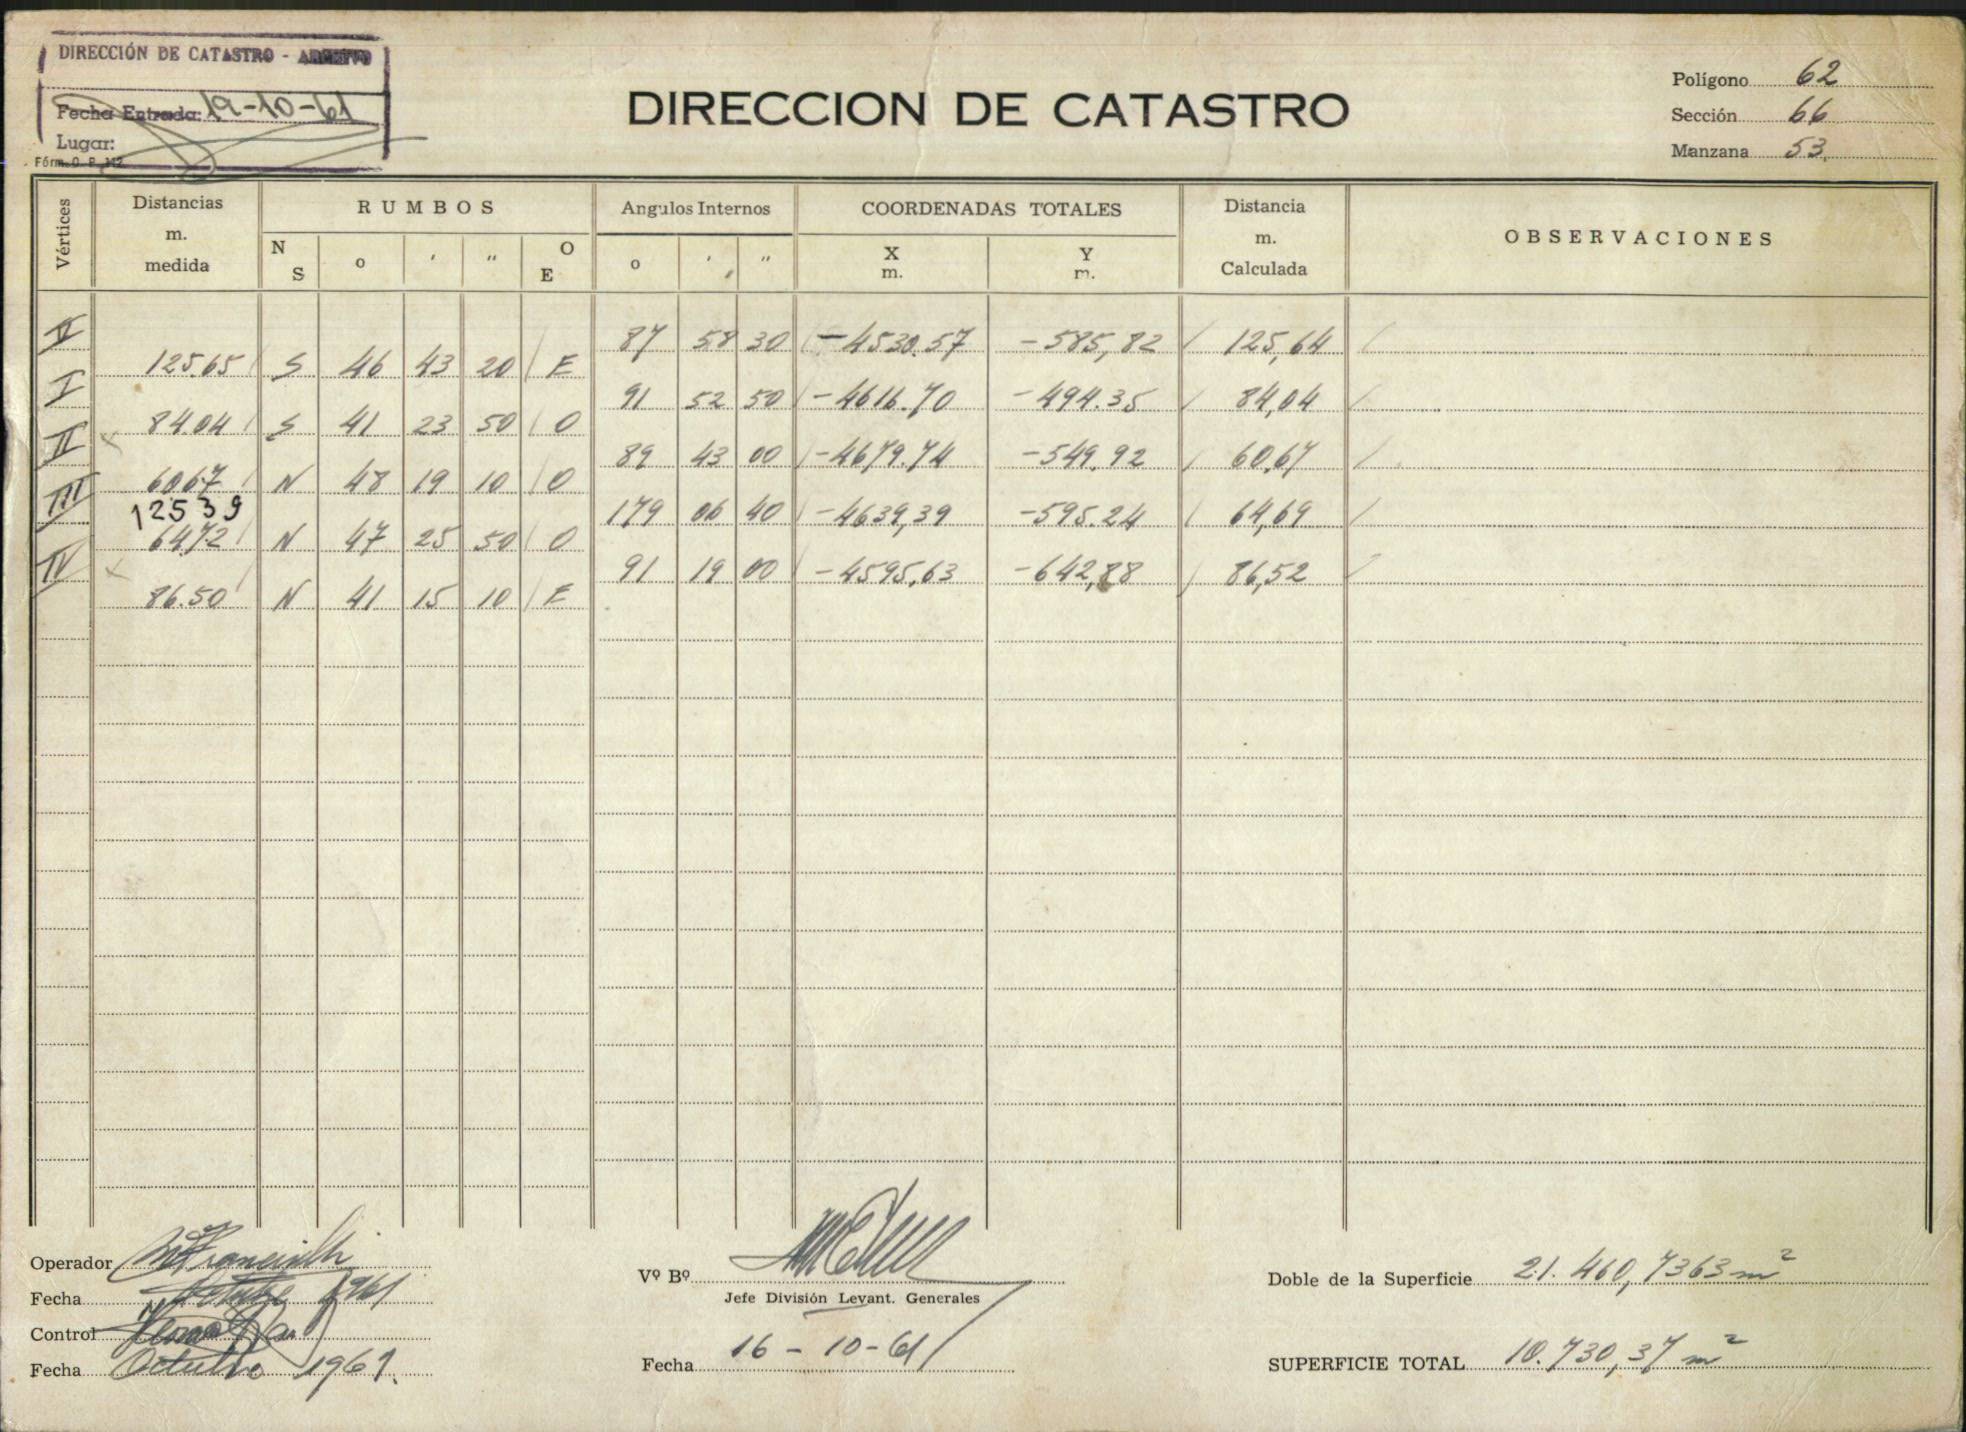 DIRECCIÓN DE CATASTRO - ARCHIVO
Fecha Entrada: 19-10-61
Lugar:
Fórm. O. P. 142
DIRECCION DE CATASTRO
Polígono 62
Sección 66
Manzana 53.
Vértices
Distancias m. medida
RUMBOS
N S o ' " O E
Angulos Internos
o ' "
COORDENADAS TOTALES
X m. Y m.
Distancia m. Calculada
OBSERVACIONES
V 87 58 30 -4530.57 -585,82 125,64
125.65 S 46 43 20 E
I 91 52 50 -4616.70 -494.35 84,04
84.04 S 41 23 50 O
II 89 43 00 -4679.74 -549.92 60,67
60.67 N 48 19 10 O
III 179 06 40 -4639,39 -595.24 64,69
12539
64.72 N 47 25 50 O
IV 91 19 00 -4595,63 -642,88 86,52
86.50 N 41 15 10 E
Operador
Fecha Octubre 1961
Control
Fecha Octubre 1961.
Vº Bº
Jefe División Levant. Generales
Fecha 16 - 10 - 61
Doble de la Superficie 21.460,7363 m²
SUPERFICIE TOTAL 10.730,37 m²